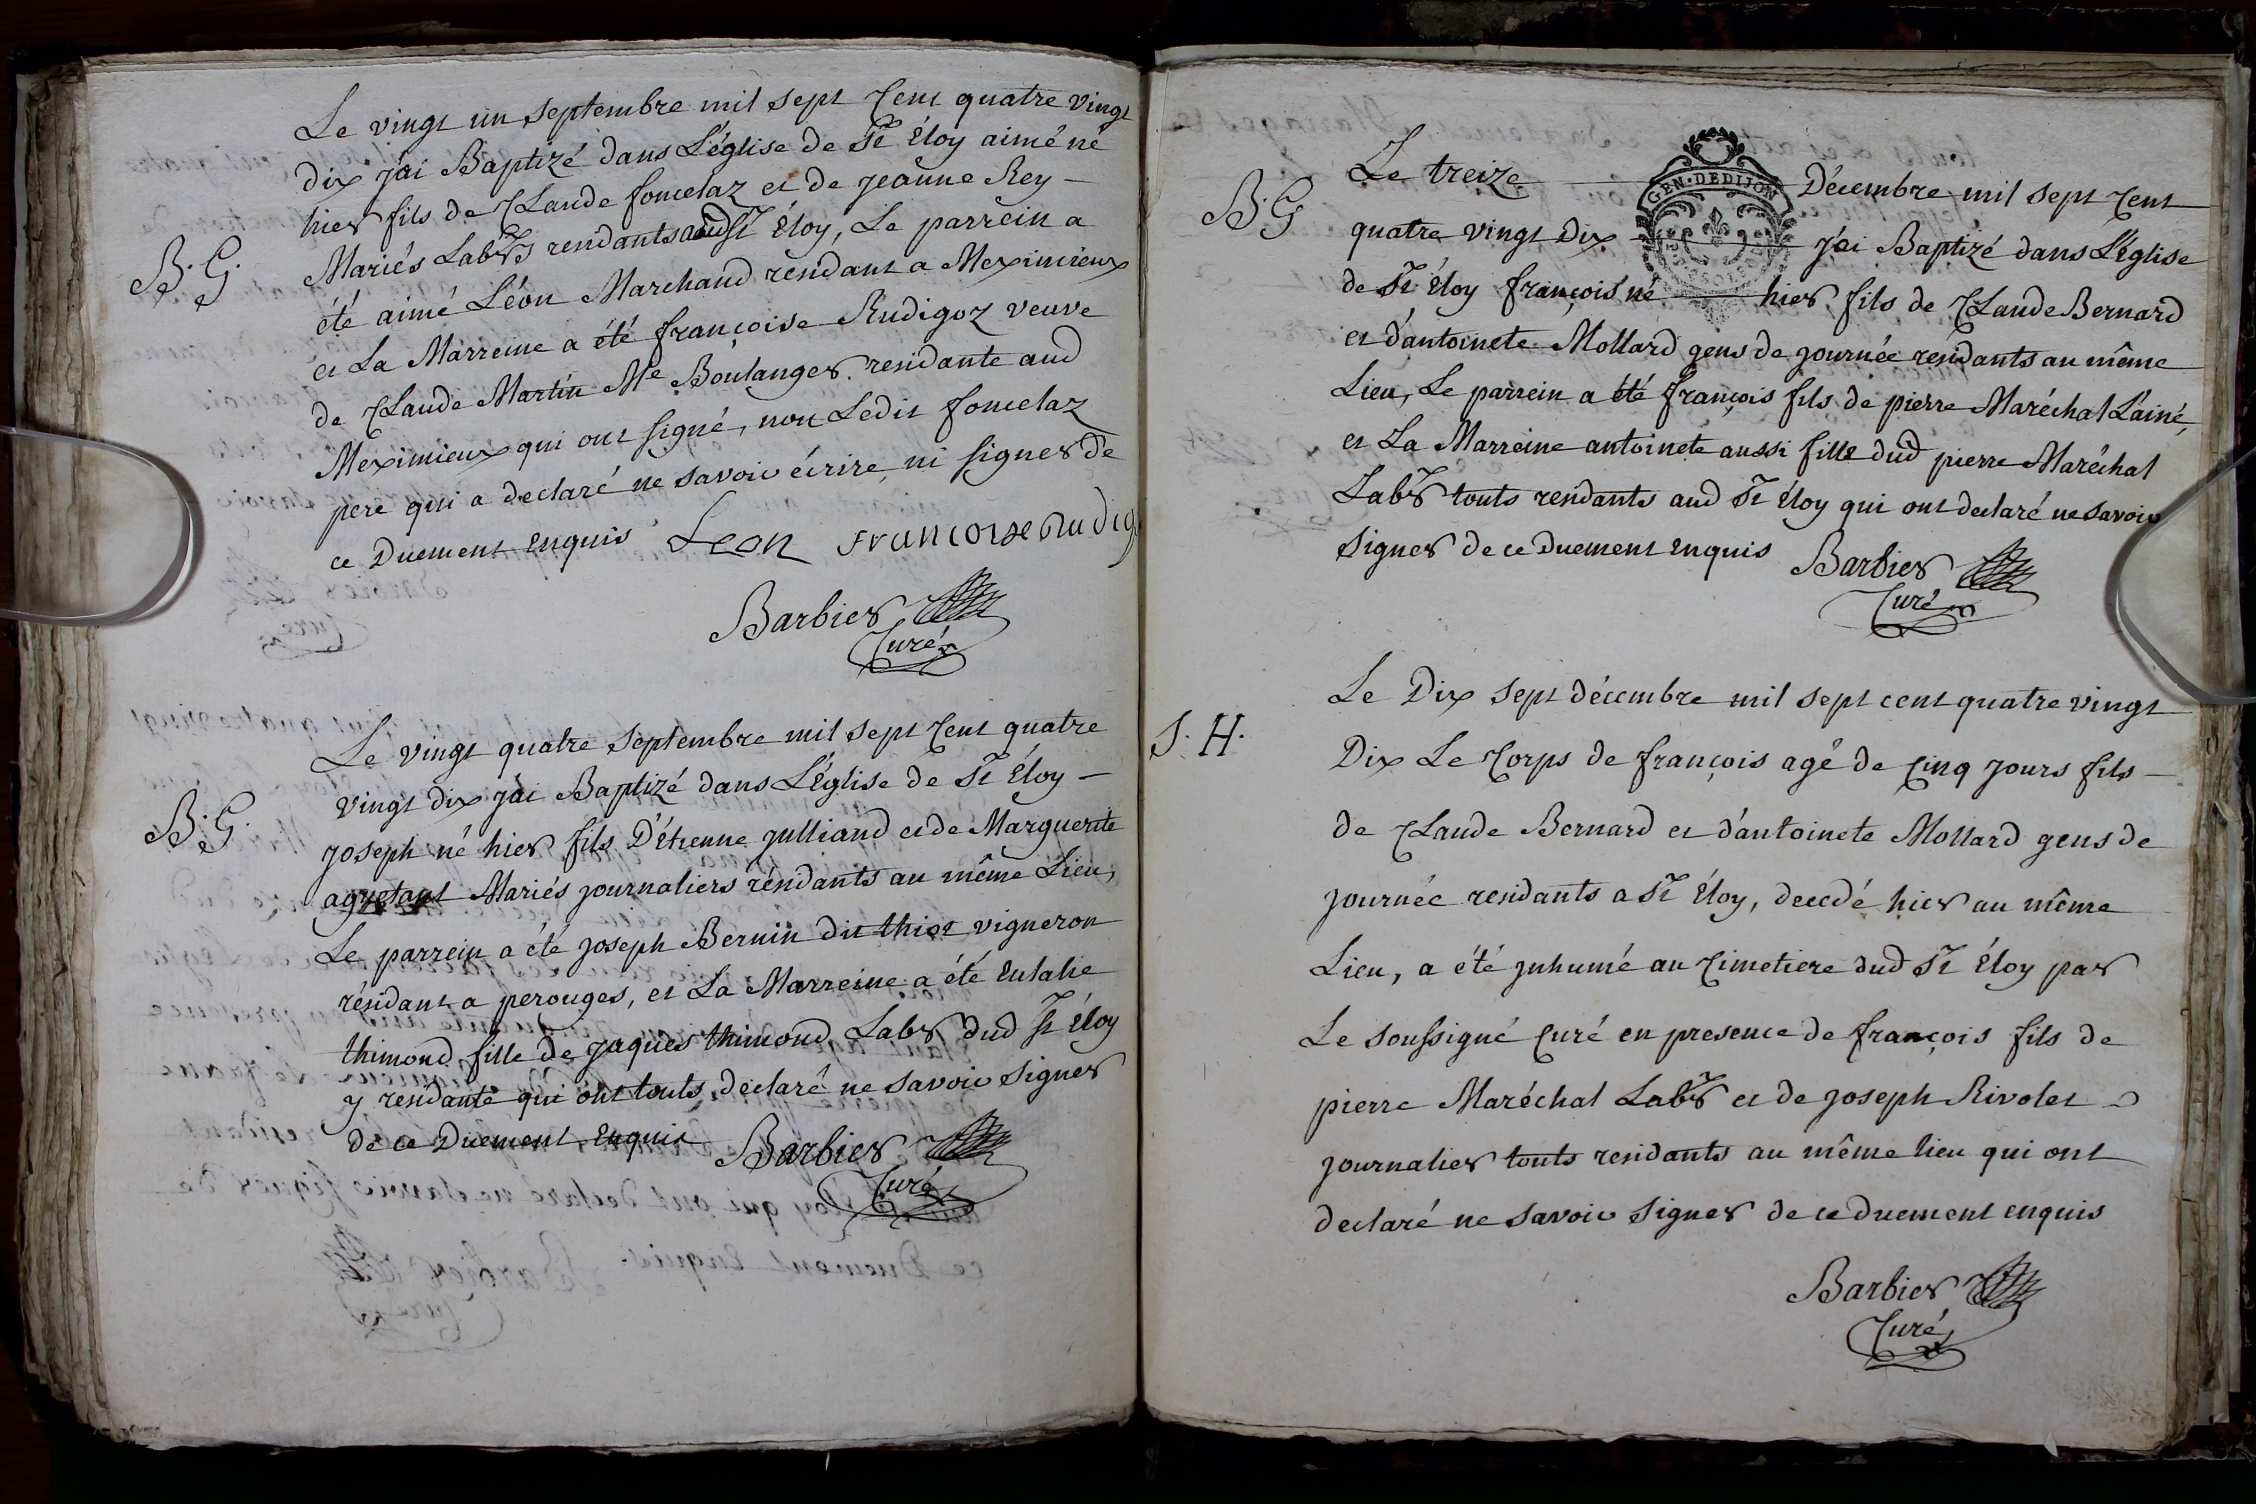 Le vingt un septembre mil sept Cent quatre vingt
dix j'ai Baptizé dans L'église de St Éloy aimé né
hier fils de Claude foncelaz et de jeanne Rey —
B. G.
Mariés Labrs residants aud St Éloy, Le parrein a
été aimé Léon Marchand residant a Meximieux
et La Marreine a été françoise Rudigoz veuve
de Claude Martin Me Boulanger residante aud
Meximieux qui ont signé, non Ledit foncelaz
pere qui a declaré ne savoir écrire, ni signer de
ce Duement enquis Leon francoise Rudig
Barbier
Curé
Le vingt quatre septembre mil sept Cent quatre
vingt dix j'ai Baptizé dans L'église de St Éloy —
B. G.
joseph né hier fils D'étienne julliand et de Marguerite
Mariés journaliers résidants au même Lieu,
Le parrein a été joseph Bernin dit thiot vigneron
résidant a perouges, et La Marreine a été Eulalie
thimond fille de jaques thimond Labr dud St Éloy
y residante qui ont touts declaré ne savoir signer
de ce Duement enquis Barbier
Curé
GEN. DE DIJON
B. G
Le treize Décembre mil sept Cent
quatre vingt Dix j'ai Baptizé dans L'Église
de St Éloy françois né hier fils de Claude Bernard
et d'antoinete Mollard gens de journée residants au même
Lieu, Le parrein a été françois fils de pierre Maréchal L'ainé,
et La Marreine antoinete aussi fille dud pierre Maréchal
Labr touts residants aud St Éloy qui ont declaré ne savoir
signer de ce Duement enquis Barbier
Curé
S. H.
Le Dix sept décembre mil sept cent quatre vingt
Dix Le Corps de françois agé de Cinq jours fils —
de Claude Bernard et d'antoinete Mollard gens de
journée residants a St Éloy, decedé hier au même
Lieu, a été inhumé au Cimetiere dud St Éloy par
Le soussigné Curé en presence de françois fils de
pierre Maréchal Labr et de joseph Rivolet
journalier touts residants au même lieu qui ont
declaré ne savoir signer de ce duement enquis
Barbier
Curé